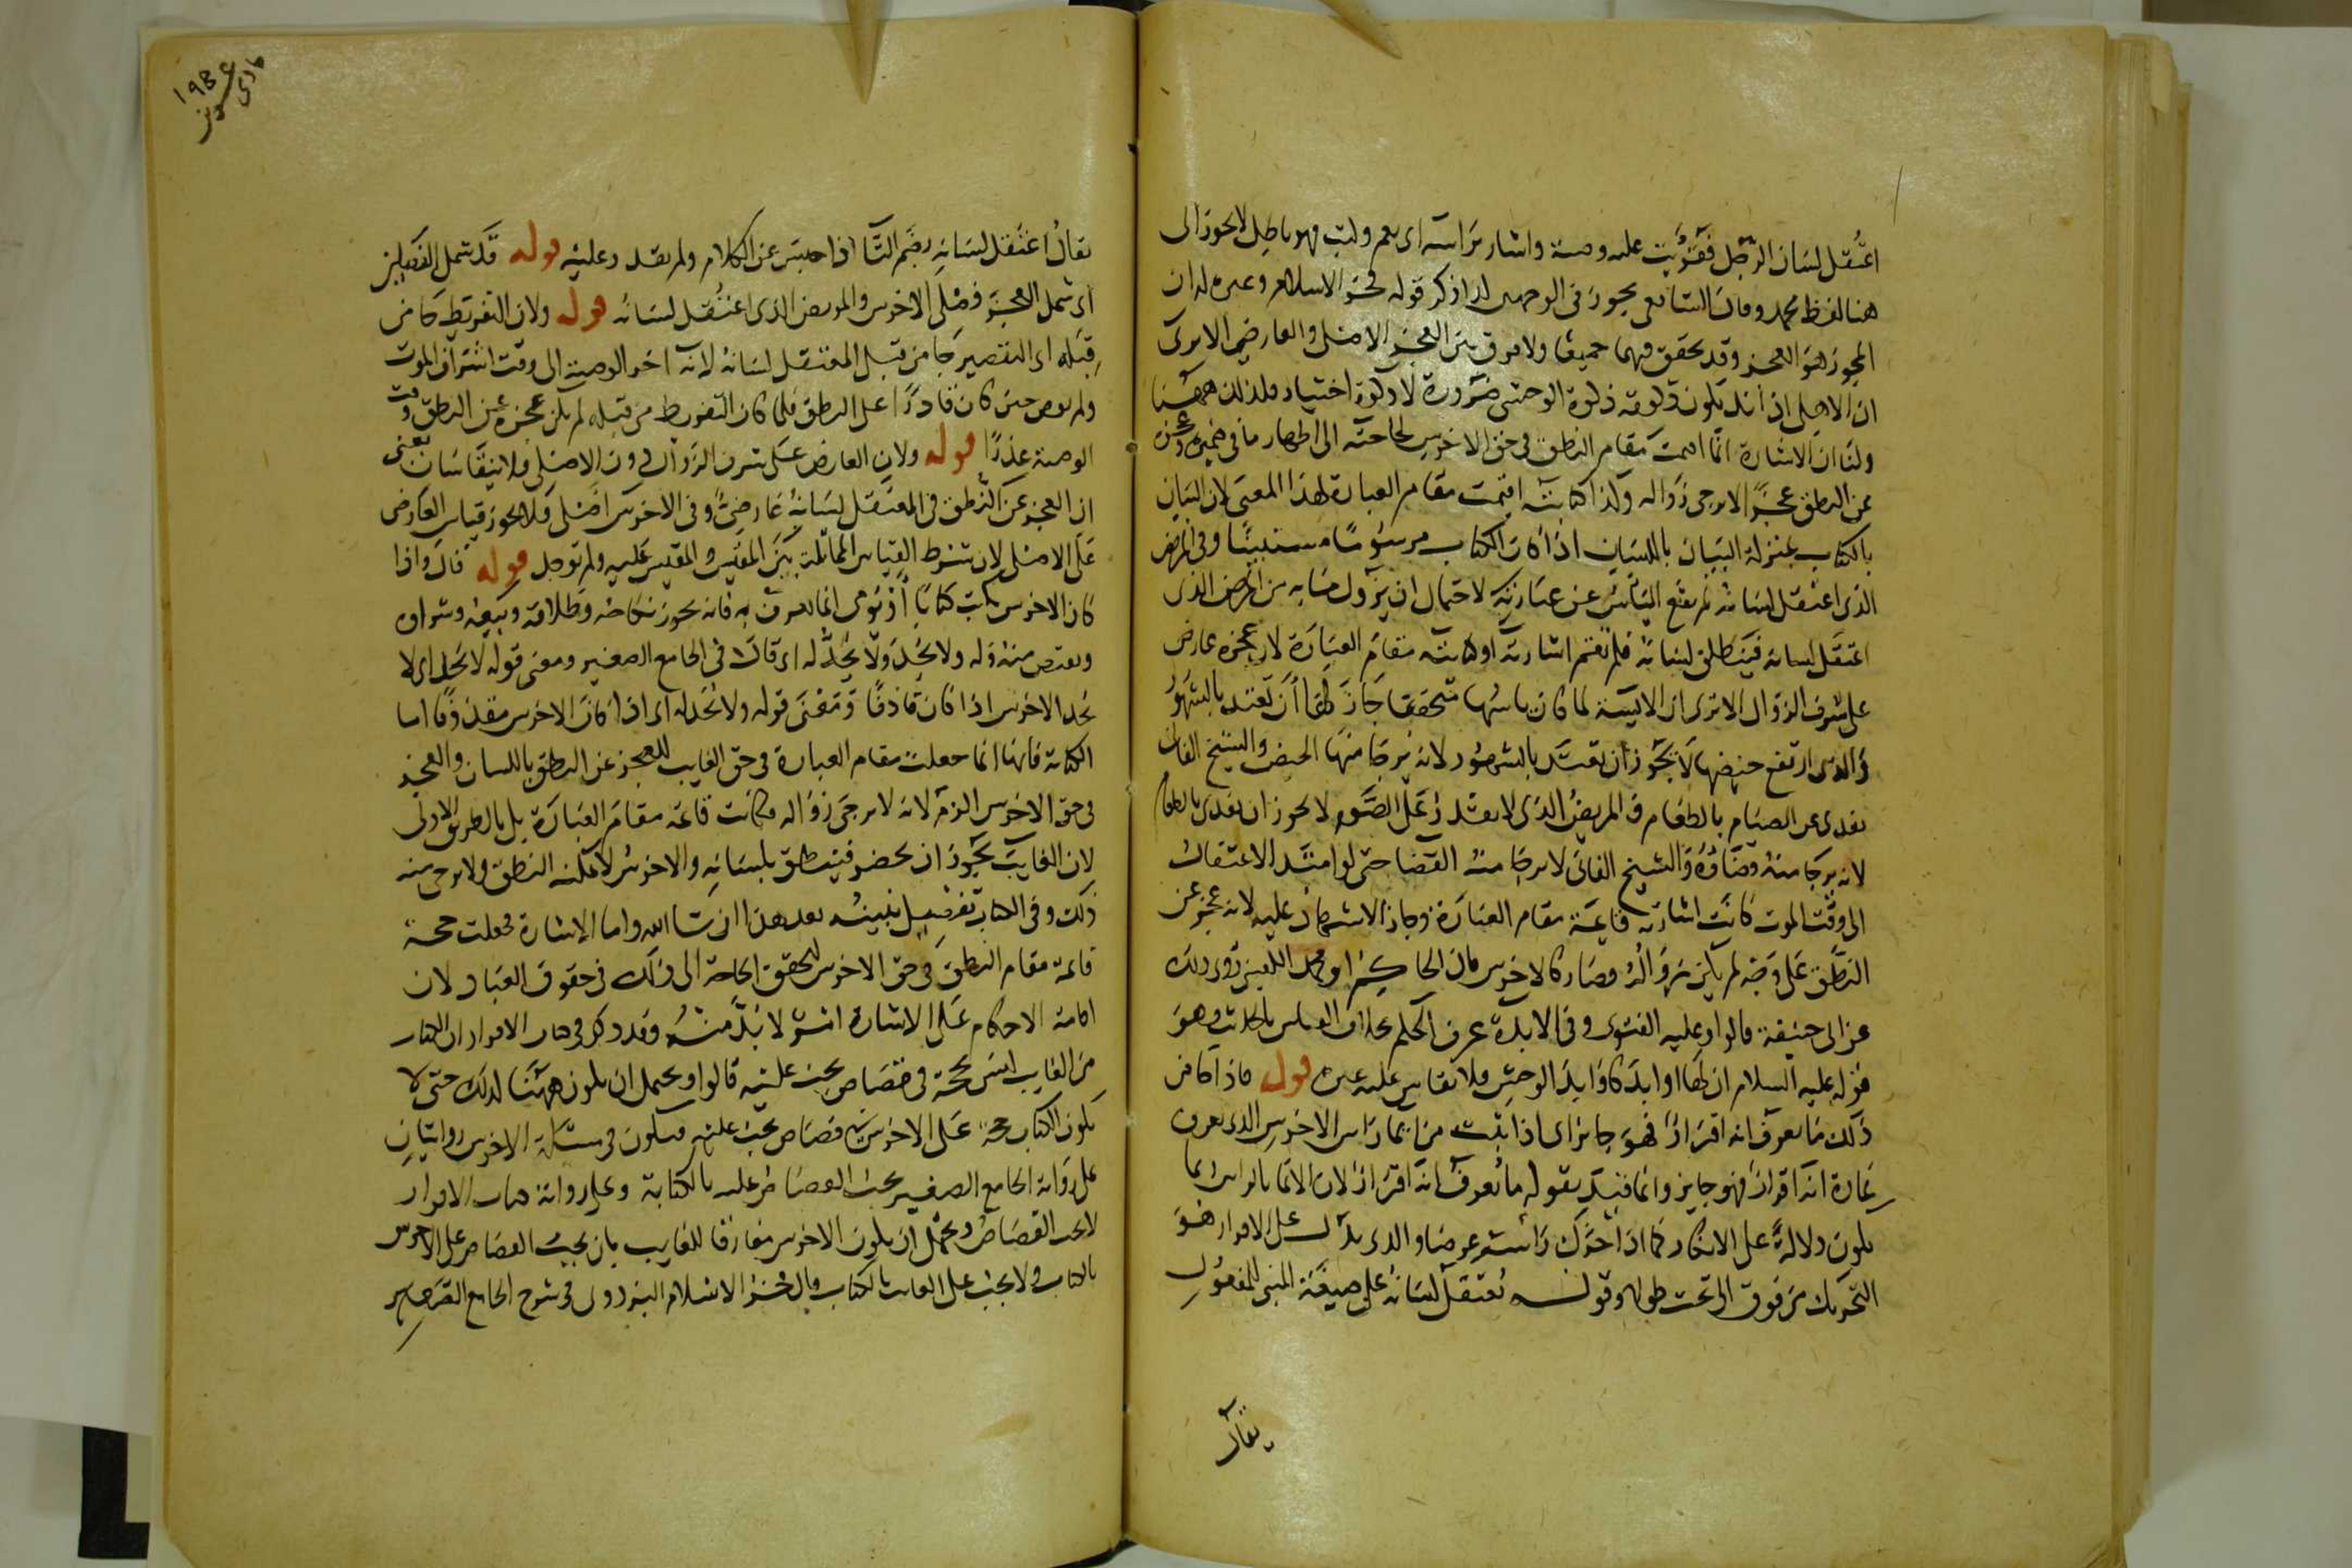 اعتُقل لسان الرجل فقُرِئت عليه وصية واشار برأسه اى نعم وكتب فهو باطل لا يجوز الى
هنا لفظ محمد وقال الشافعى يجوز فى الوجهين ذكر قوله فخر الاسلام وغيره له ان
المجوز هو العجز وقد تحقق فيهما جميعا ولا فرق بين العجز الاصلى والعارضى الا يرى
ان الاهلى اذا ند يكون ذكوته ذكوة الوحشى ضرورة لا ذكوة اختيار فلذلك ههنا
ولنا ان الاشارة انما اقيمت مقام النطق فى حق الاخرس لحاجته الى اظهار ما فى ضميره وعجزه
عن النطق عجزا لا يرجى زواله ولذا كتابته اقيمت مقام العبارة لهذا المعنى لان البيان
بالكتاب بمنزلة البيان باللسان اذا كان الكتاب مرسوما مستبينا وفى المرض
الذى اعتقل لسانه لم يقع اليأس عن عبارته لاحتمال ان يزول ما به من المرض الذى
اعتقل لسانه فينطلق لسانه فلم تقم اشارته او كتابته مقام العبارة لان عجزه عارض
على شرف الزوال الا ترى ان الآيسة لما كان ياسها متحققا جاز لها ان تعتد بالشهور
والذى ارتفع حيضها لا يجوز ان تعتد بالشهور لانه يرجا منها الحيض والشيخ الفان
يفدى عن الصيام بالطعام والمريض الذى لا يقدر على الصوم لا يجوز ان يفدى بالطعام
لانه يرجا منه قضاؤه والشيخ الفانى لا يرجا منه القضا حتى لو امتد الاعتقال
الى وقت الموت كانت اشارته قايمة مقام العبارة وجاز الاشهاد عليه لانه عجز عن
النطق على وجه لم يكن زواله وصار كالاخرس كان الحاكم ابو محمد روى ذلك
عن ابى حنيفة قالوا وعليه الفتوى وفى الابدة عرف الحكم بخلاف القياس بالحديث وهو
قوله عليه السلام ان لها اوابد كاوابد الوحش فلا يقاس عليه غيره قوله فاذا كان
ذلك ما يعرف انه اقرارا فهو جايز اى اذا كتب من ايما رأس الاخرس الذى يعرف
عادة انه اقرار فهو جايز وانما قيد بقوله ما يعرف انه اقرار لان الايما بالراس ربما
يكون دلالة على الانكار كما اذا حرك رأسه عرضا والذى يدل على الاقرار هو
التحريك من فوق الى تحت طولا وقوله يُعتقل لسانه على صيغة المبنى للمفعول
يقال
١٩٣٤
يقال اعتقل لسانه بضم التا اذا حبس عن الكلام ولم يقدر عليه قوله قد شمل الفصلين
اى شمل العجز فصلى الاخرس والمريض الذى اعتُقل لسانه قوله ولان التفريط جا من
قِبَله اى التقصير جا من قبل المعتقل لسانه لانه اخر الوصية الى وقت اشراف الموت
ولم يوص حين كان قادرا على النطق فلما كان التفريط من قبله لم يكن عجزه عن النطق وقت
الوصية عذرا قوله ولان العارض على شرف الزوال دون الاصلى فلا ينقاسان يعنى
ان العجز عن النطق فى المعتقل لسانه عارضى وفى الاخرس اصلى فلا يجوز قياس العارض
على الاصلى لان شرط القياس المماثلة بين المقيس والمقيس عليه ولم توجد قوله قال واذا
كان الاخرس يكتب كتابا او يومى ايما يعرف به فانه يجوز نكاحه وطلاقه وبيعه وشراوه
ويقتص منه وله ولا يُحد ولا يُحد له اى قال فى الجامع الصغير ومعنى قوله لا يحد اى لا
يحد الاخرس اذا كان قاذفا ومعنى قوله ولا يحد له اى اذا كان الاخرس مقذوفا اما
الكتابة فانها انما جعلت مقام العبارة فى حق الغايب للعجز عن النطق باللسان والعجز
فى حق الاخرس الزم لانه لا يرجى زواله فكانت قائمة مقام العبارة بل بالطريق الاولى
لان الغايب يجوز ان يحضر فينطق بلسانه والاخرس لا يمكنه النطق ولا يرجى منه
ذلك وفى الكتاب تفصيل نبينه بعد هذا ان شا الله واما الاشارة فجعلت حجة
قائمة مقام النطق فى حق الاخرس لتحقق الحاجة الى ذلك فى حقوق العباد لان
اقامة الاحكام على الاشارة امر لا بد منه وقد ذكر فى كتاب الاقرار ان الكتاب
من الغايب ليس بحجة فى قصاص يجب عليه قالوا ويحتمل ان يكون ههنا كذلك حتى لا
يكون الكتاب حجة على الاخرس فى قصاص يجب عليه فيكون فى مسئلة الاخرس روايتان
على رواية الجامع الصغير يجب القصاص عليه بالكتابة وعلى رواية كتاب الاقرار
لا يجب القصاص ويحتمل ان يكون الاخرس مفارقا للغايب بان يجب القصاص على الاخرس
بالكتاب ولا يجب على الغايب بالكتاب وقال فخر الاسلام البزدوى فى شرح الجامع الصغير